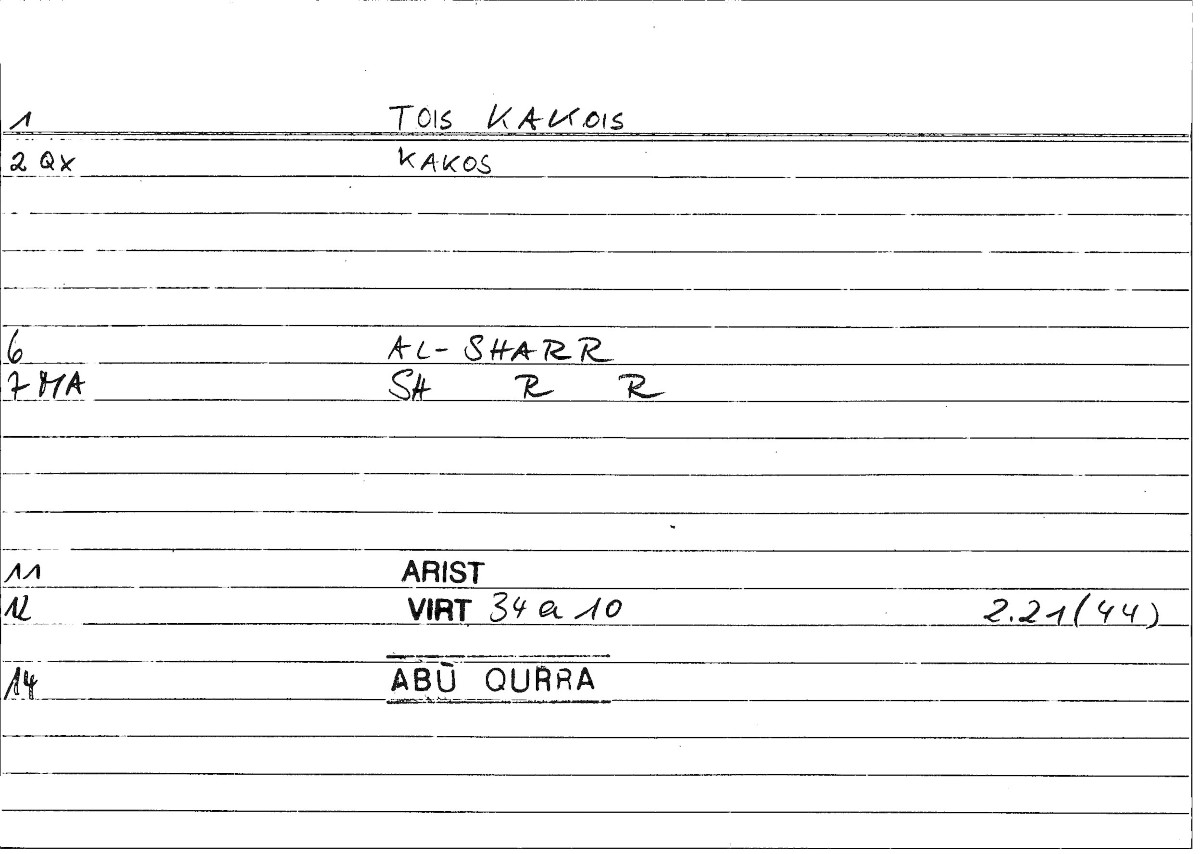 1 TOIS KAKOIS
2 QX KAKOS
6 AL-SHARR
7 MA SH R R
11 ARIST
12 VIRT 34 a 10 2.21(44)
14 ABŪ QURRA